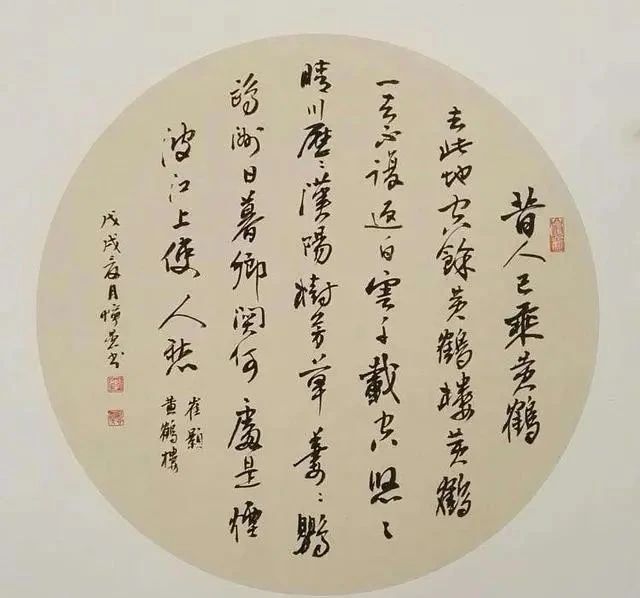 昔人已乘黄鶴
去此地空餘黄鶴樓黄鶴
一去不復返白雲千載空悠〻
晴川歷〻漢陽樹芳草萋〻鸚
鵡洲日暮鄉關何處是煙
波江上使人愁
崔顥
黄鶴樓
戊戌夏月書